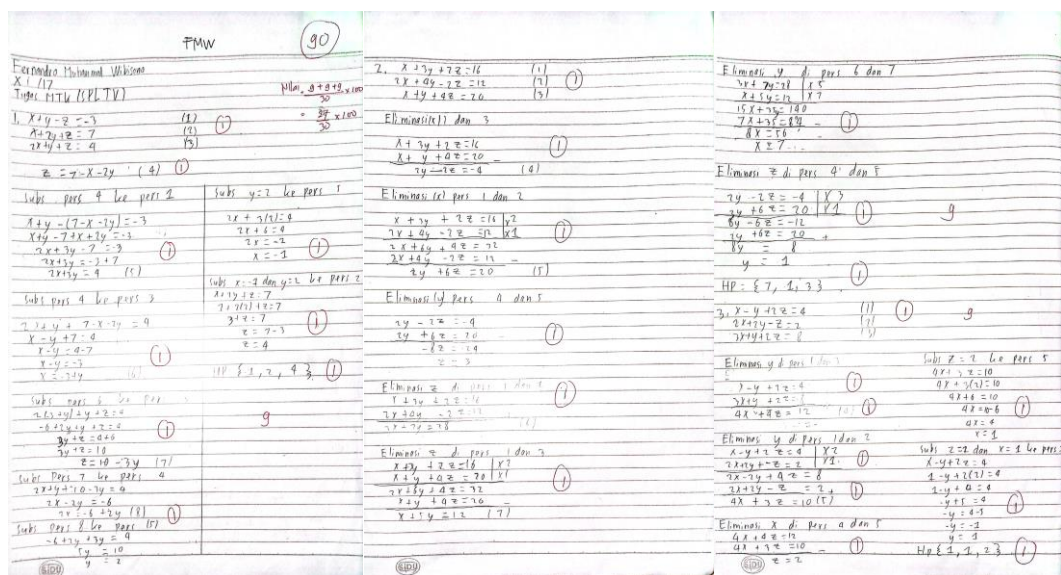 FMW
90
Fernandro Muhammad Wibisono
X 1 / 17
Tugas MTK (SPLTV)
Nilai = 9+9+9 / 30 x 100
= 27 / 30 x 100
1. x+y-z=-3 (1)
x+2y+z=7 (2)
2x+y+z=4 (3)
1
z=7-x-2y (4) 1
Subs pers 4 ke pers 1
x+y-(7-x-2y)=-3
x+y-7+x+2y=-3
2x+3y-7=-3
2x+3y=-3+7
2x+3y=4 (5)
1
Subs pers 4 ke pers 3
2x+y+7-x-2y=4
x-y+7=4
x-y=4-7
x-y=-3
x=-3+y (6)
1
Subs pers 6 ke pers
-6+2y+y+z=4
3y+z=4+6
3y+z=10
z=10-3y (7)
1
Subs Pers 7 ke pers 4
2x+y+10-3y=4
2x-2y=-6
2x=-6+2y (8) 1
Subs pers 8 ke pers (5)
-6+2y+3y=4
5y=10
y=2
SIDU
Subs y=2 ke pers
2x+3(2)=4
2x+6=4
2x=-2
x=-1
1
Subs x=-1 dan y=2 ke pers 2
x+2y+z=7
3+z=7
z=7-3
z=4
1
HP {1,2,4} 1
9
2. x+3y+2z=16 (1)
2x+4y-2z=12 (2)
x+y+4z=20 (3)
1
Eliminasi(x)1 dan 3
x+3y+2z=16
x+y+4z=20
2y-2z=-4 (4)
1
Eliminasi (x) pers 1 dan 2
x+3y+2z=16 |x2
2x+4y-2z=12 |x1
2x+6y+4z=32
2x+4y-2z=12 -
2y+6z=20 (5)
1
Eliminasi (y) pers 4 dan 5
2y-2z=-4
2y+6z=20
-8z=-24
z=3
1
Eliminasi z di pers 1 dan 2
x+3y+2z=16
2x+4y-2z=12
3x+7y=28 (6)
1
Eliminasi z di pers 1 dan 3
x+3y+2z=16 |x2
x+y+4z=20 |x1
2x+6y+4z=32
x+y+4z=20 -
x+5y=12 (7)
1
SIDU
Eliminasi y di pers 6 dan 7
3x+7y=28 |x5
x+5y=12 |x7
8x=56
x=7
1
Eliminasi z di pers 4 dan 5
2y-2z=-4 |x3
2y+6z=20 |x1
6y-6z=-12
2y+6z=20 +
8y=8
y=1
1
9
HP: {7,1,3}
1
3. x-y+2z=4 (1)
2x+2y-z=2 (2)
3x+y+2z=8 (3)
1
9
Eliminasi y di pers 1 dan 3
x-y+2z=4
3x+y+2z=8
4x+4z=12 (4)
1
1
Eliminasi y di pers 1 dan 2
x-y+2z=4 |x2
2x+2y-z=2 |x1
2x-2y+4z=8
2x+2y-z=2 +
4x+3z=10 (5)
1
1
Eliminasi x di pers 4 dan 5
4x+4z=12
4x+3z=10 -
z=2
1
Subs z=2 ke pers 5
4x+3z=10
4x+3(2)=10
4x+6=10
4x=10-6
4x=4
x=1
1
Subs z=2 dan x=1 ke pers
x-y+2z=4
1-y+2(2)=4
1-y+4=4
-y+5=4
-y=4-5
-y=-1
y=1
1
Hp {1,1,2} 1
SIDU